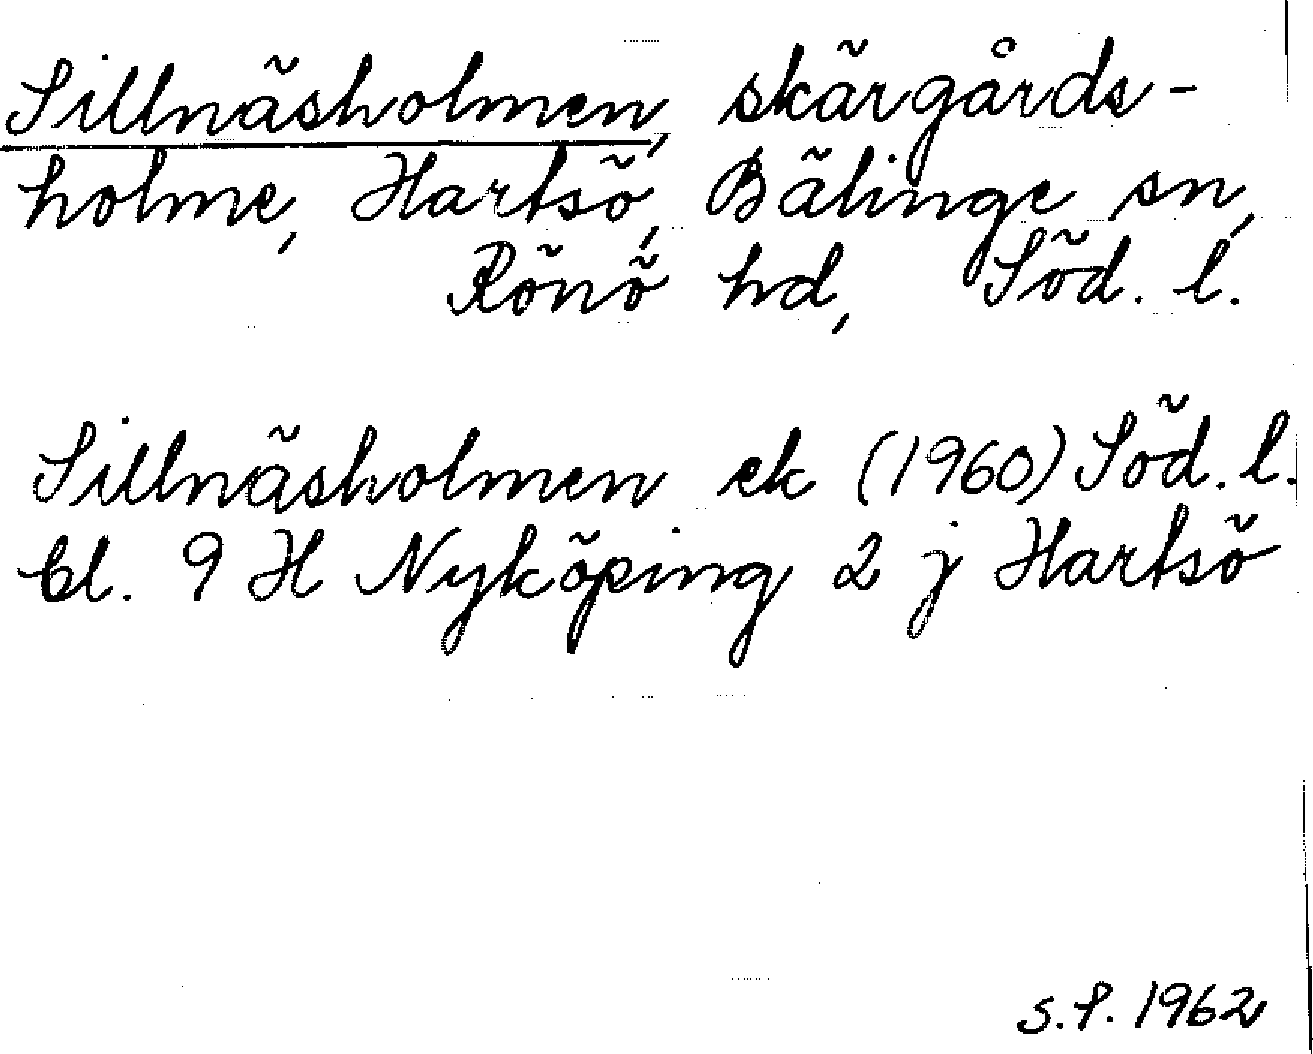 Sillnäsholmen, skärgårds-
holme, Hartsö, Bälinge sn,
Rönö hd, Söd. l.
Sillnäsholmen ek (1960) Söd. l.
bl. 9 H Nyköping 2 j Hartsö
S.P. 1962